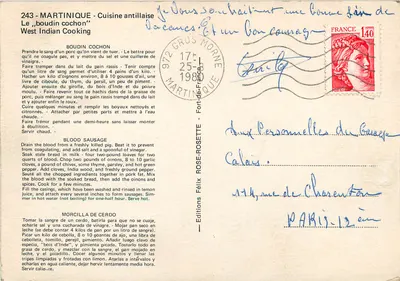 243 - MARTINIQUE - Cuisine antillaise
Le „boudin cochon"
West Indian Cooking
BOUDIN COCHON
Prendre le sang d'un porc qu'on vient de tuer - Le battre pour
qu'il ne coagule pas, et y mettre du sel et une cuillerée de
vinaigre.
Faire tremper dans du lait du pain rassis - Tenir compte
qu'un litre de sang permet d'utiliser 4 pains d'un kilo.
Hacher un kilo d'oignons environ, 8 à 10 gousses d'ail, une
livre de ciboule, du thym, du persil, un peu de piment.
Ajouter ensuite du girofle, du bois d'Inde et du poivre
moulu. Faire revenir le tout dans de la graisse de
porc, puis mélanger au sang le pain trempé dans du lait
et y ajouter enfin les épices.
Cuire quelques minutes et remplir les boyaux nettoyés
et citronnés. Attacher par petites parts et mettre à l'eau
chaude.
Faire frémir pendant une demi-heure sans laisser monter
à ébullition.
Servir chaud.
BLOOD SAUSAGE
Drain the blood from a freshly killed pig. Beat it to prevent
from coagulating, and add salt and a spoonful of vinegar.
Soak stale bread in milk - Four two-pound loaves for two
quarts of blood. Chop two pounds of onions, 8 to 10 garlic
cloves, a pound of chives, some thyme, parsley, and hot green
pepper. Add cloves, India wood, and freshly ground pepper.
Sauté all the chopped ingredients together in pork lard. Mix
the blood with the soaked bread, then add this mixture and
spices. Cook for a few minutes.
Fill the casings, which have been soaked and rinsed in lemon
juice, and attach every several inches to form sausages. Simmer in hot water (not boiling) for one half-hour. Serve hot.
MORCILLA DE CERDO
Tomar la sangre de un cerdo, batirla para que no se cuaje,
echarle sal y una cucharada de vinagre. - Mojar pan seco en
la leche. Picar un kilo de cebollas, 8 o 10 gousses de ajo, una libra de
cebolleta, tomillo, perejil, pimiento. Añadir luego clavo de
especia, "bois d'Inde", y pimienta picada.
Servir caliente.
Editions Félix ROSE-ROSETTE - Fort-de-France
972 GROS MORNE
17-
25-1
1980
MARTINIQUE
1,40
Je Vous souhaitant une bonne fin de
vacances. Et un bon courage
Aux Personnelles du Garage
Calais.
114, rue de Charenton
PARIS-12ème